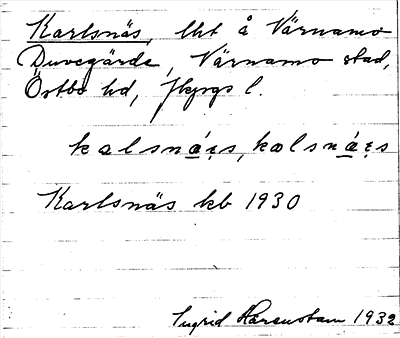 Karlsnäs, lht å Värnamo
Duvegärde, Värnamo stad,
Östbo hd, Jkpgs l.
kalsnás, kalsnás
Karlsnäs kb 1930
Ingrid Harenstam 1932